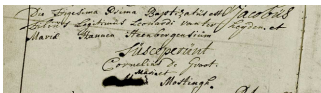 Die Trigesima Prima Baptizatus est Jacobus
filius Legitimus Leonardi van der Leyden, et
Maria Hannen Steenbergensium
Susceperunt
Cornelius de Groot.
Maria
Mostingh.